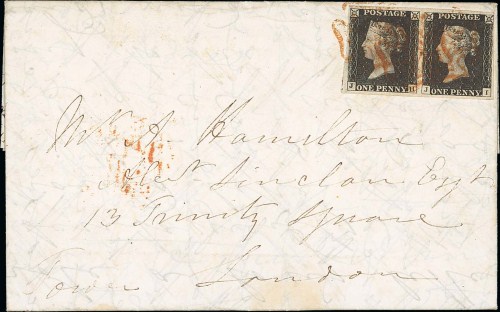 POSTAGE POSTAGE
ONE PENNY J ONE PENNY I
Mrs A. Hamilton
Sinclair Esqr
13 Trinity Square
Tower London